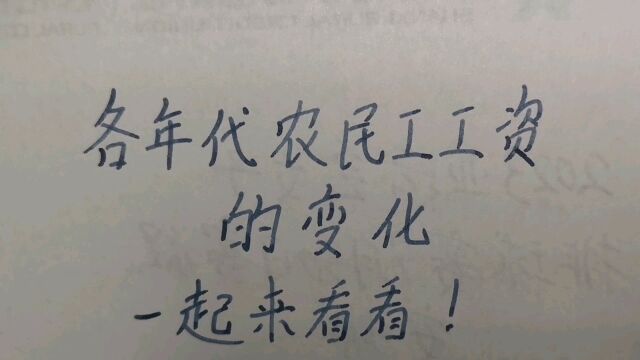 各年代农民工工资
的变化
一起来看看！